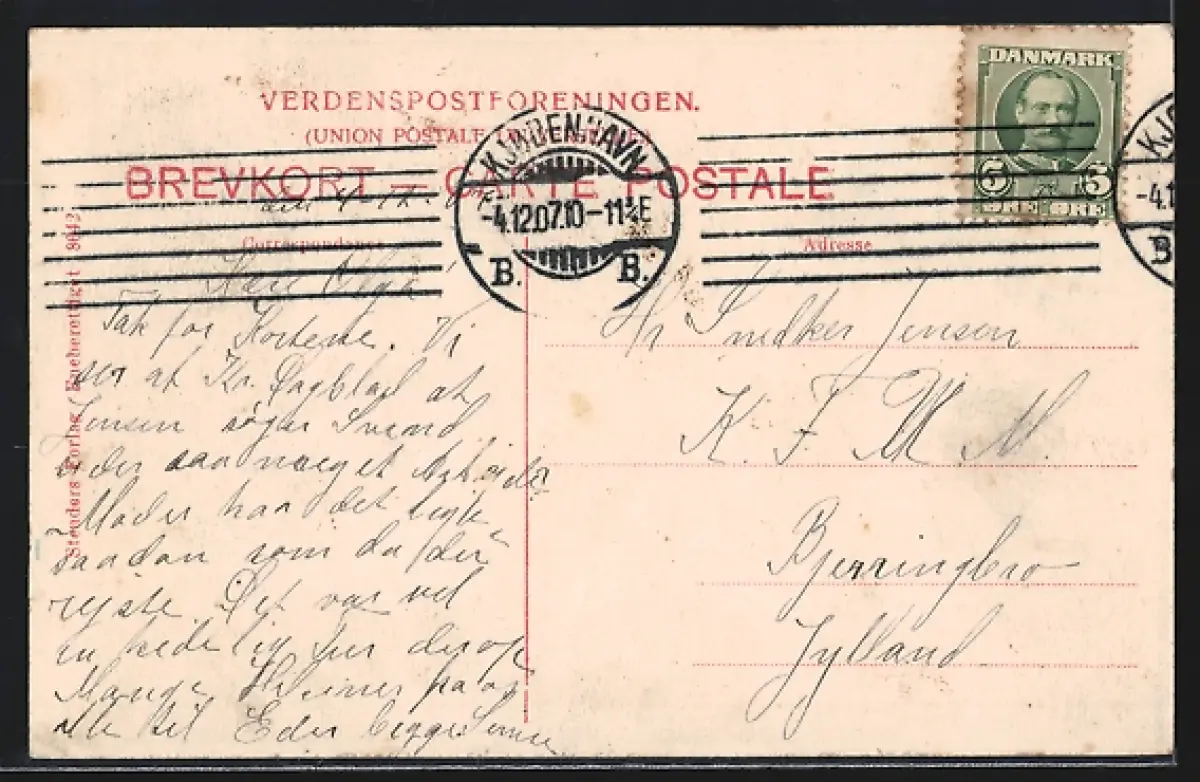 VERDENSPOSTFORENINGEN.
(UNION POSTALE UNIVERSELLE)
BREVKORT — CARTE POSTALE
Correspondance
Adresse
DANMARK
5 5
ØRE ØRE
KJØBENHAVN
-4.12.07.10-11¾E
B. B.
KJØ
-4.1
B
Stenders Forlag Eneberettiget 8642
den 4-12-
Kære Olga
Tak for Kortene. Vi
ser af Kr. Dagblad at
Jensen søger Svend
eller saa noget Arbejde
Moder har det lige
saadan som da der
rejste. Det var vel
en kedelig for
Mange Hilsner fra os
alle til Eder begge
Hr Snedker Jensen
K. F. U. M.
Bjerringbro
Jylland